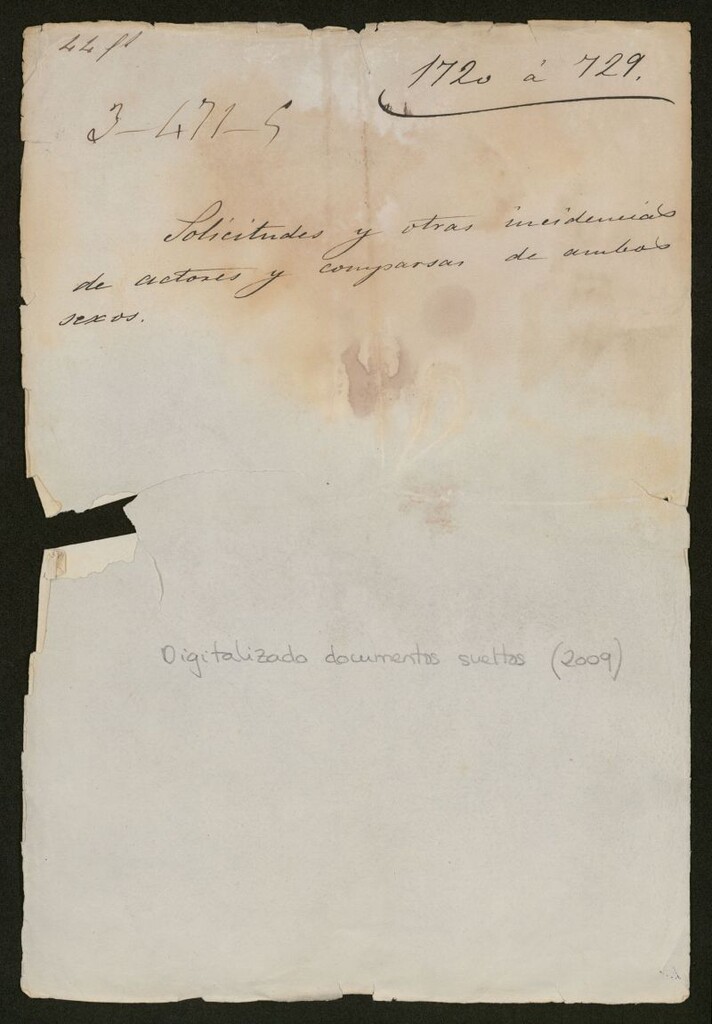 44 fs
1720 á 729.
3-471-5
Solicitudes y otras incidencias
de actores y comparsas de ambos
sexos.
Digitalizado documentos sueltos (2009)